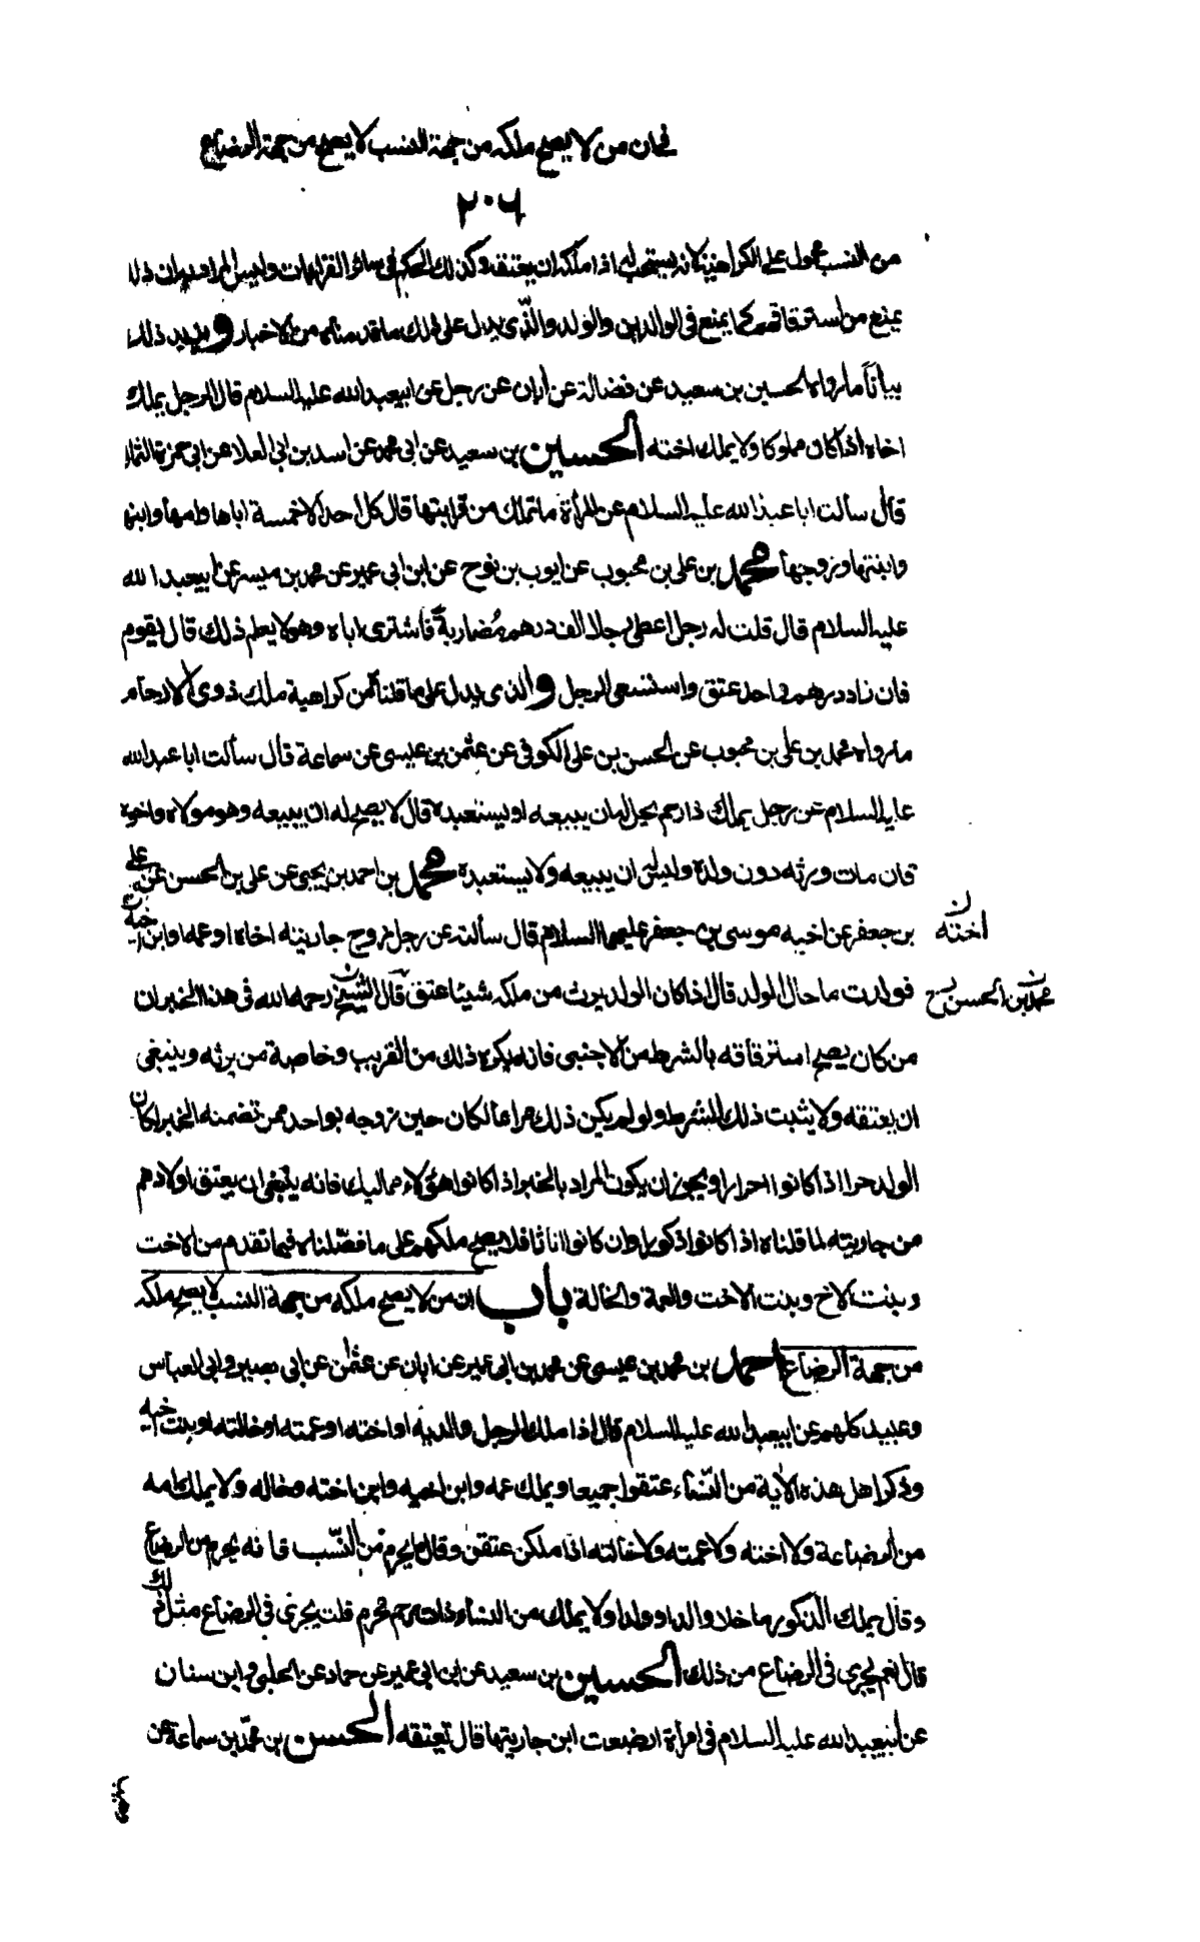 في ان من لا يصح ملكه من جهة النسب لا يصح من جهة الرضاع
٢٠٦
من النسب محمول على الكراهية لانه يستحب له اذا ملكه ان يعتقه وكذلك الحكم في سائر القرابات وليس المراد به ان ذلك
يمنع من استرقاقهم كما يمنع في الوالدين والولد والذي يدل على ذلك ما قدمناه من الاخبار ويزيد ذلك
بيانا ما رواه الحسين بن سعيد عن فضالة عن ابان عن رجل عن ابيعبد الله عليه السلام قال الرجل يملك
اخاه اذا كان مملوكا ولا يملك اخته الحسين بن سعيد عن ابى محمد عن اسد بن ابى العلا عن ابى حمزة الثمالى
قال سألت ابا عبد الله عليه السلام عن المرأة ما تملك من قرابتها قال كل احد الا خمسة اباها وامها وابنها
وابنتها وزوجها محمد بن على بن محبوب عن ايوب بن نوح عن ابن ابى عمير عن محمد بن ميسر عن ابيعبد الله
عليه السلام قال قلت له رجل اعطى رجلا الف درهم مُضاربة فاشترى اباه وهو لا يعلم ذلك قال يقوم
فان زاد درهم واحد عتق واستسعى الرجل والذى يدل على ما قلناه من كراهية ملك ذوى الارحام
ما رواه محمد بن على بن محبوب عن الحسن بن على الكوفى عن عثمن بن عيسى عن سماعة قال سألت ابا عبد الله
عليه السلام عن رجل يملك ذا رحم يحل له ان يبيعه او يستعبده قال لا يصح له ان يبيعه وهو مولاه واخوه
فان مات ورثه دون ولده وليس له ان يبيعه ولا يستعبده محمد بن احمد بن يحيى عن على بن الحسن عن على
بن جعفر عن اخيه موسى بن جعفر عليهما السلام قال سألته عن رجل زوج جاريته اخاه او عمه او ابن اخيه
اخته ن
فولدت ما حال الولد قال اذا كان الولد يرث من ملكه شيئا عتق قال الشيخ رحمه الله فى هذا الخبر ان
محمد بن الحسن
من كان يصح استرقاقه بالشرط من الاجنبى فانه يكره ذلك من القريب وخاصة من يرثه وينبغى
ان يعتقه ولا يثبت ذلك الشرط ولو لم يكن ذلك مراعا لكان حين زوجه بواحد ممن تضمنه الخبر لكان
الولد حرا اذا كانوا احرارا ويجوز ان يكون المراد بالخبر اذا كانوا هؤلاء مماليك فانه ينبغى ان يعتق اولادهم
من جاريته لما قلناه اذا كانوا ذكورا وان كانوا اناثا فلا يصح ملكهم على ما فصّلناه فيما تقدم من الاخت
وبنت الاخ وبنت الاخت والعمة والخالة باب ان من لا يصح ملكه من جهة النسب لا يصح ملكه
من جهة الرضاع احمد بن محمد بن عيسى عن محمد بن ابى عمير عن ابان عن عثمن عن ابى بصير وابى العباس
وعبيد كلهم عن ابيعبد الله عليه السلام قال اذا ملك الرجل والديه او اخته او عمته او خالته او بنت اخيه
وذكر اهل هذه الآية من النّساء عتقوا جميعا ويملك عمه وابن اخيه وابن اخته وخاله ولا يملك امه
من الرضاعة ولا اخته ولا عمته ولا خالته اذا ملكن عتقن وقال ما يحرم من النّسب فانه يحرم من الرضاع
وقال يملك الذكور ما خلا والدا وولدا ولا يملك من النساء ذات رحم محرم قلت يجرى فى الرضاع مثل ذلك
قال نعم يجرى فى الرضاع من ذلك الحسين بن سعيد عن ابن ابى عمير عن حماد عن الحلبى وابن سنان
عن ابيعبد الله عليه السلام فى امرأة ارضعت ابن جاريتها قال تعتقه الحسن بن محمّد بن سماعة عن